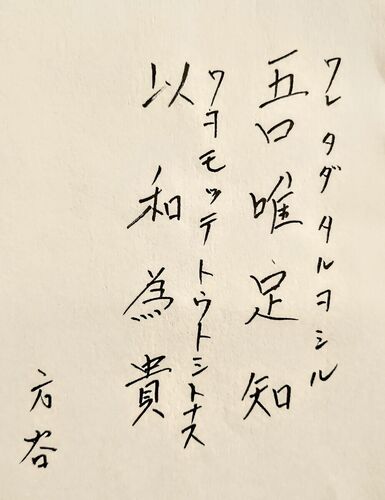 吾唯足知
ワレタダタルヲシル
以和為貴
ワヲモッテトウトシトナス
方谷